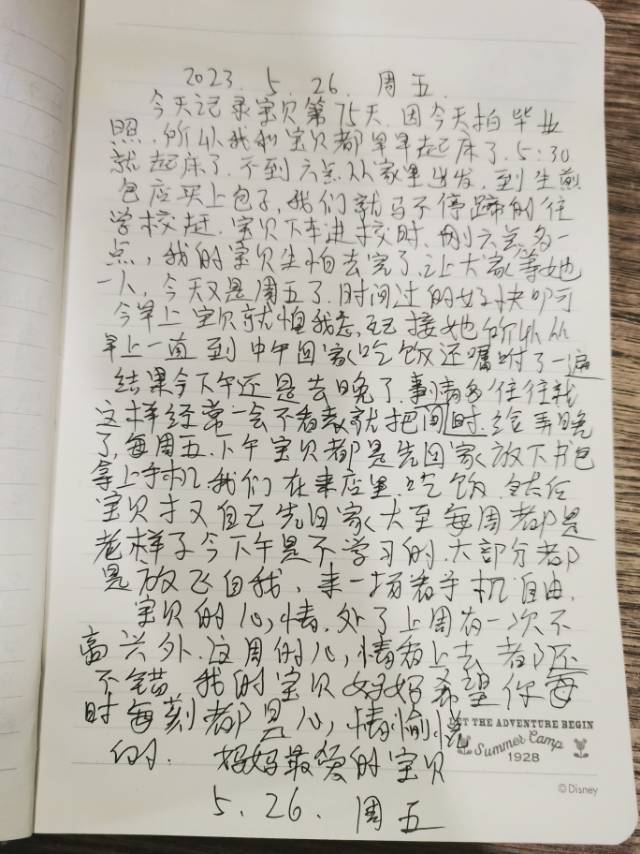 2023. 5. 26. 周五.
今天记录宝贝第75天.因今天拍毕业
照.所以我和宝贝都早早起床了.5:30
就起床了.不到六点从家里出发.到生煎
包店买上包子,我们就马不停蹄的往
学校赶.宝贝下车进校时.刚六点多一
点,我的宝贝生怕去完了.让大家等她
一人,今天又是周五了.时间过的好快叩可
今早上宝贝就怕我忘记接她所以从
早上一直到中午回家吃饭还嘱咐了一遍
结果今下午还是去晚了.事情多往往就
这样经常一会不看表就把时间给弄晚
了,每周五.下午宝贝都是先回家放下书包
拿上手机.我们在来店里.吃饭.
宝贝才又自己先回家大至每周都是
老样子今下午是不学习的.大部分都
是放飞自我,来一场看手机自由.
宝贝的心情.处了上周有一次不
高兴外.这周的心情看上去都还
不错.我的宝贝妈妈希望你每
时每刻都是心情愉悦
的. 妈妈最爱的宝贝
5.26. 周五
LET THE ADVENTURE BEGIN
Summer Camp
1928
©Disney